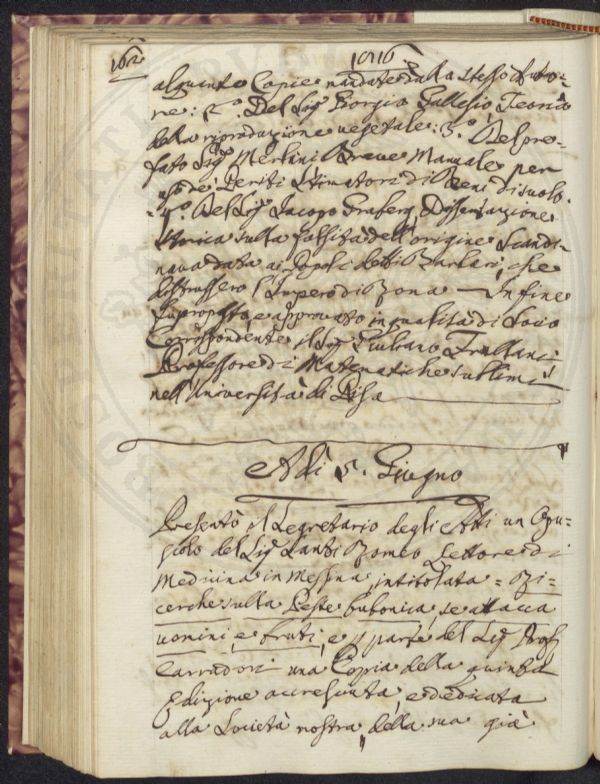 162
1816
alquante Copie mandate dalla stesso Auto-
re: 2º. Del Sig Giorgio Gallesio, Teoria
della riproduzione vegetale: 3º. Del pre-
fato Sig Merlani Breve Manuale per
uso de' Periti Stimatori di Beni di suolo.
4º. Del Sig Jacopo Graberg, Dissertazione
Storica sulla falsità dell'origine Scandi-
nava data ai Popoli detti Barbari, che
distrussero l'Impero di Roma — In fine
fu proposto, e approvato in qualità di Socio
Corrispondente il Sig Giuliano Frullani
Professore di Matematiche sublimi
nell'Università di Pisa
Adì 5. Giugno
Presentò il Segretario degli Atti un Opu-
scolo del Sig Santi Romeo Lettore di
Medicina in Messina, intitolata = Ri-
cerche sulla Peste bubonica, se attacca
uomini, e bruti, e p parte del Sig Prof
Carradori una Copia della quinta
Edizione accresciuta, e dedicata
alla Società nostra, della sua già